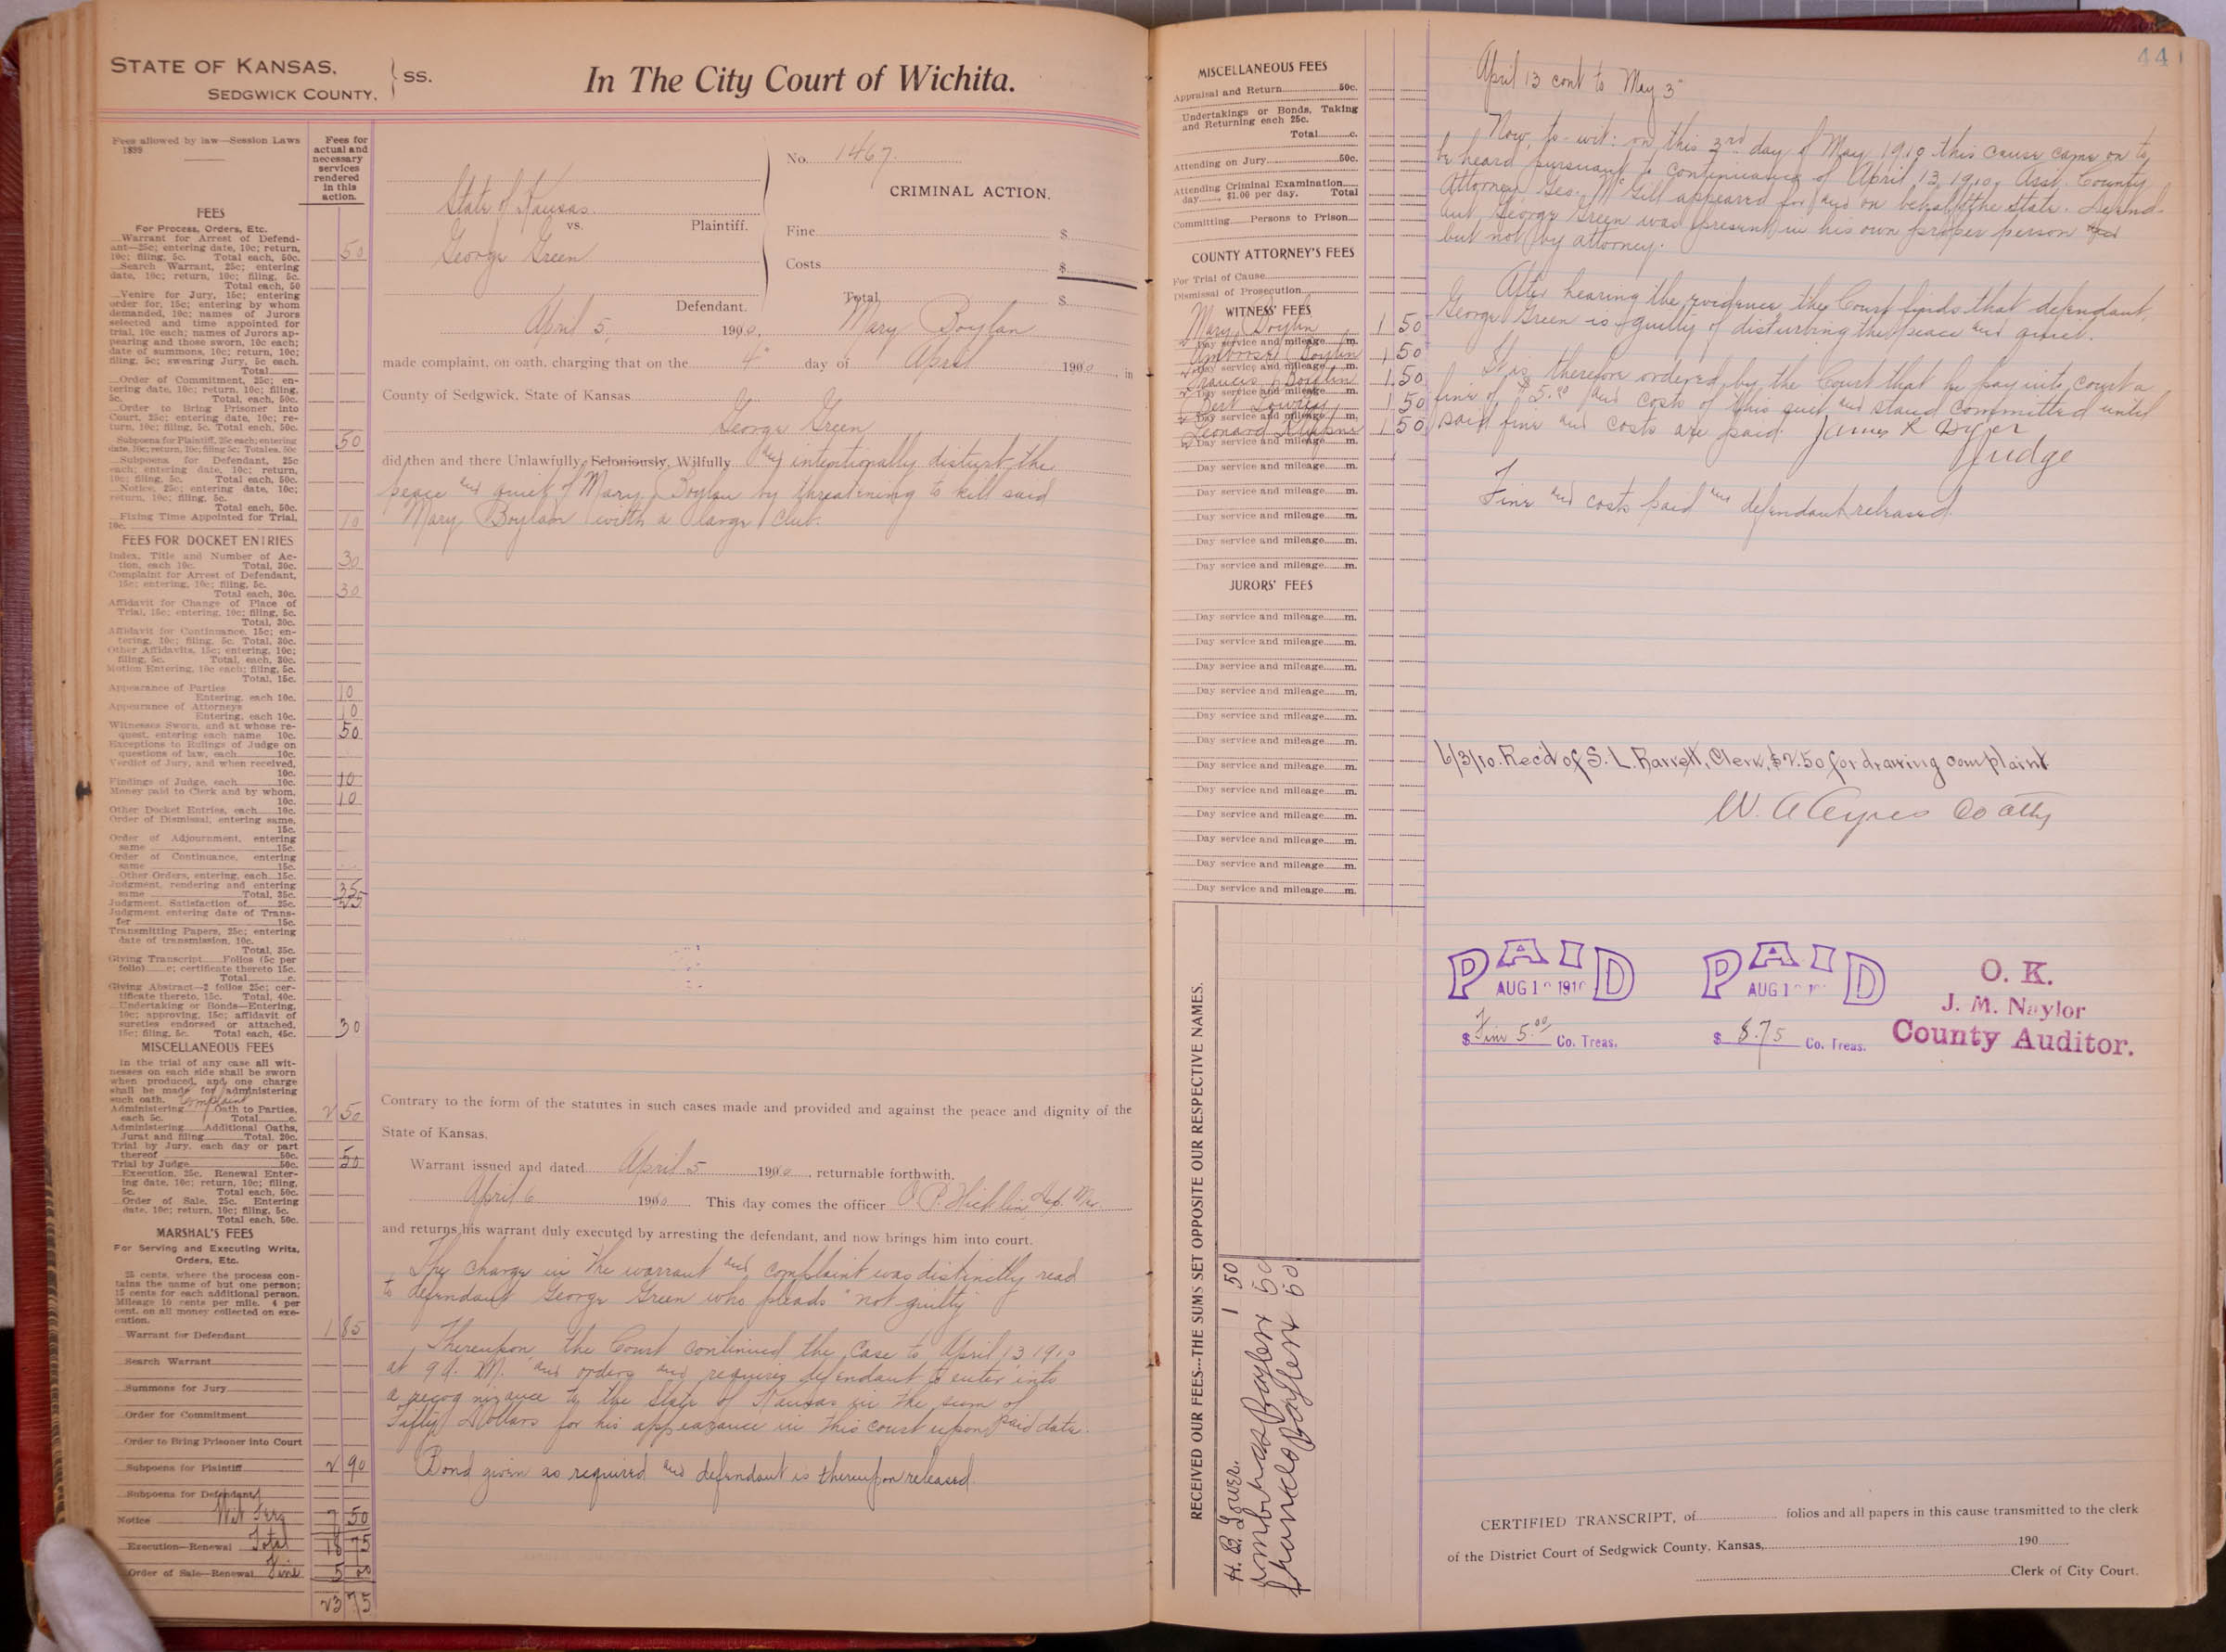 STATE OF KANSAS,
SEDGWICK COUNTY,
SS.
In The City Court of Wichita.
Fees allowed by law—Session Laws
1899
Fees for
actual and
necessary
services
rendered
in this
action.
FEES
For Process, Orders, Etc.
Warrant for Arrest of Defend-
ant—25c; entering date, 10c; return,
10c; filing, 5c. Total each, 50c. 50
Search Warrant, 25c; entering
date, 10c; return, 10c; filing, 5c.
Total each, 50
Venire for Jury, 15c; entering
order for, 15c; entering by whom
demanded, 10c; names of Jurors
selected and time appointed for
trial, 10c each; names of Jurors ap-
pearing and those sworn, 10c each;
date of summons, 10c; return, 10c;
filing, 5c; swearing Jury, 5c each.
Total
Order of Commitment, 25c; en-
tering date, 10c; return, 10c; filing,
5c. Total, each, 50c.
Order to Bring Prisoner into
Court, 25c; entering date, 10c; re-
turn, 10c; filing, 5c. Total each, 50c.
Subpoena for Plaintiff, 25c each; entering
date, 10c; return, 10c; filing 5c; Total ea. 50c 50
Subpoena for Defendant, 25c
each; entering date, 10c; return,
10c; filing, 5c. Total each, 50c.
Notice, 25c; entering date, 10c;
return, 10c; filing, 5c.
Total each, 50c.
Fixing Time Appointed for Trial,
10c. 10
FEES FOR DOCKET ENTRIES
Index, Title and Number of Ac-
tion, each 10c. Total, 30c. 30
Complaint for Arrest of Defendant,
15c; entering, 10c; filing, 5c.
Total each, 30c. 30
Affidavit for Change of Place of
Trial, 15c; entering, 10c; filing, 5c.
Total, 30c.
Affidavit for Continuance, 15c; en-
tering, 10c; filing, 5c. Total, 30c.
Other Affidavits, 15c; entering, 10c;
filing, 5c. Total, each, 30c.
Motion Entering, 10c each; filing, 5c.
Total, 15c.
Appearance of Parties
Entering, each 10c. 10
Appearance of Attorneys
Entering, each 10c. 10
Witnesses Sworn, and at whose re-
quest, entering each name 10c. 50
Exceptions to Rulings of Judge on
questions of law, each 10c.
Verdict of Jury, and when received,
10c.
Findings of Judge, each 10c. 10
Money paid to Clerk and by whom,
10c. 10
Other Docket Entries, each 10c.
Order of Dismissal, entering same,
15c.
Order of Adjournment, entering
same 15c.
Order of Continuance, entering
same 15c.
Other Orders, entering, each 15c.
Judgment, rendering and entering
same Total, 35c. 35
Judgment, Satisfaction of 25c. 25
Judgment entering date of Trans-
fer 15c.
Transmitting Papers, 25c; entering
date of transmission, 10c.
Total, 35c.
Giving Transcript Folios (5c per
folio) c; certificate thereto 15c.
Total c.
Giving Abstract—2 folios 25c; cer-
tificate thereto, 15c. Total, 40c.
Undertaking or Bonds—Entering,
10c; approving, 15c; affidavit of
sureties endorsed or attached,
15c; filing, 5c. Total each, 45c. 30
MISCELLANEOUS FEES
In the trial of any case all wit-
nesses on each side shall be sworn
when produced, and one charge
shall be made for administering
such oath. Complaint
Administering Oath to Parties,
each 5c. Total c. 2 50
Administering Additional Oaths,
Jurat and filing Total, 20c.
Trial by Jury, each day or part
thereof 50c.
Trial by Judge 50c. 50
Execution, 25c. Renewal Enter-
ing date, 10c; return, 10c; filing,
5c. Total each, 50c.
Order of Sale, 25c. Entering
date, 10c; return, 10c; filing, 5c.
Total each, 50c.
MARSHAL'S FEES
For Serving and Executing Writs,
Orders, Etc.
25 cents, where the process con-
tains the name of but one person;
15 cents for each additional person.
Mileage 10 cents per mile. 4 per
cent. on all money collected on exe-
cution.
Warrant for Defendant 1 85
Search Warrant
Summons for Jury
Order for Commitment
Order to Bring Prisoner into Court
Subpoena for Plaintiff 2 90
Subpoena for Defendant
Notice Wit Fees 7 50
Execution—Renewal Total 18 75
Order of Sale—Renewal Fine 5 00
23 75
No. 1467.
CRIMINAL ACTION.
State of Kansas.
Plaintiff.
vs.
George Green
Defendant.
Fine $
Costs $
Total $
April 5, 1910. Mary Boylan
made complaint, on oath, charging that on the 4" day of April 1910, in
County of Sedgwick, State of Kansas
George Green
did then and there Unlawfully, Feloniously, Wilfully and intentionally disturb the
peace and quiet of Mary Boylan by threatening to kill said
Mary Boylan with a large club.
Contrary to the form of the statutes in such cases made and provided and against the peace and dignity of the
State of Kansas.
Warrant issued and dated April 5 1910, returnable forthwith.
April 6 1910. This day comes the officer O. P. Hicklin Dep. Mar.
and returns his warrant duly executed by arresting the defendant, and now brings him into court.
The charge in the warrant and complaint was distinctly read
to defendant George Green who pleads "not guilty"
Thereupon the Court continued the case to April 13 1910
at 9 A. M. and orders and requires defendant to enter into
a recognizance to the State of Kansas in the sum of
Fifty Dollars for his appearance in this court upon said date.
Bond given as required and defendant is thereupon released.
44
MISCELLANEOUS FEES
Appraisal and Return 50c.
Undertakings or Bonds, Taking
and Returning each 25c.
Total c.
Attending on Jury 50c.
Attending Criminal Examination
day, $1.00 per day. Total
Committing Persons to Prison
COUNTY ATTORNEY'S FEES
For Trial of Cause
Dismissal of Prosecution
WITNESS' FEES
Mary Boylin 1 50
Day service and mileage m.
Ambrose Boylin 1 50
Day service and mileage m.
Francis Boylin 1 50
Day service and mileage m.
Bert Lowrey 1 50
Day service and mileage m.
Leonard 1 50
Day service and mileage m.
Day service and mileage m.
Day service and mileage m.
Day service and mileage m.
Day service and mileage m.
Day service and mileage m.
JURORS' FEES
Day service and mileage m.
Day service and mileage m.
Day service and mileage m.
Day service and mileage m.
Day service and mileage m.
Day service and mileage m.
Day service and mileage m.
Day service and mileage m.
Day service and mileage m.
Day service and mileage m.
Day service and mileage m.
Day service and mileage m.
RECEIVED OUR FEES---THE SUMS SET OPPOSITE OUR RESPECTIVE NAMES.
H. B. 1 50
Ambrose Boylen 50
Boylen 50
April 13 cont to May 3"
Now, to-wit: on this 3rd day of May 1910 this cause came on to
be heard pursuant to continuance of April 13, 1910. Asst. County
Attorney Geo. McGill appeared for and on behalf of the State. Defend-
ant George Green was present in his own proper person
but not by attorney.
After hearing the evidence the Court finds that defendant
George Green is guilty of disturbing the peace and quiet.
It is therefore ordered by the Court that he pay into court a
fine of $5.00 and costs of this suit and stand committed until
said fine and costs are paid. James K Dyer
Judge
Fine and costs paid and defendant released
6/3/10. Rec'd of S. L. Barrett, Clerk, $2.50 for drawing complaint
W. A Ayres Co atty
PAID
AUG 1 1910
$ Fine 5.00 Co. Treas.
PAID
AUG 1
$ 8.75 Co. Treas.
O. K.
J. M. Naylor
County Auditor.
CERTIFIED TRANSCRIPT, of folios and all papers in this cause transmitted to the clerk
of the District Court of Sedgwick County, Kansas, 190
Clerk of City Court.